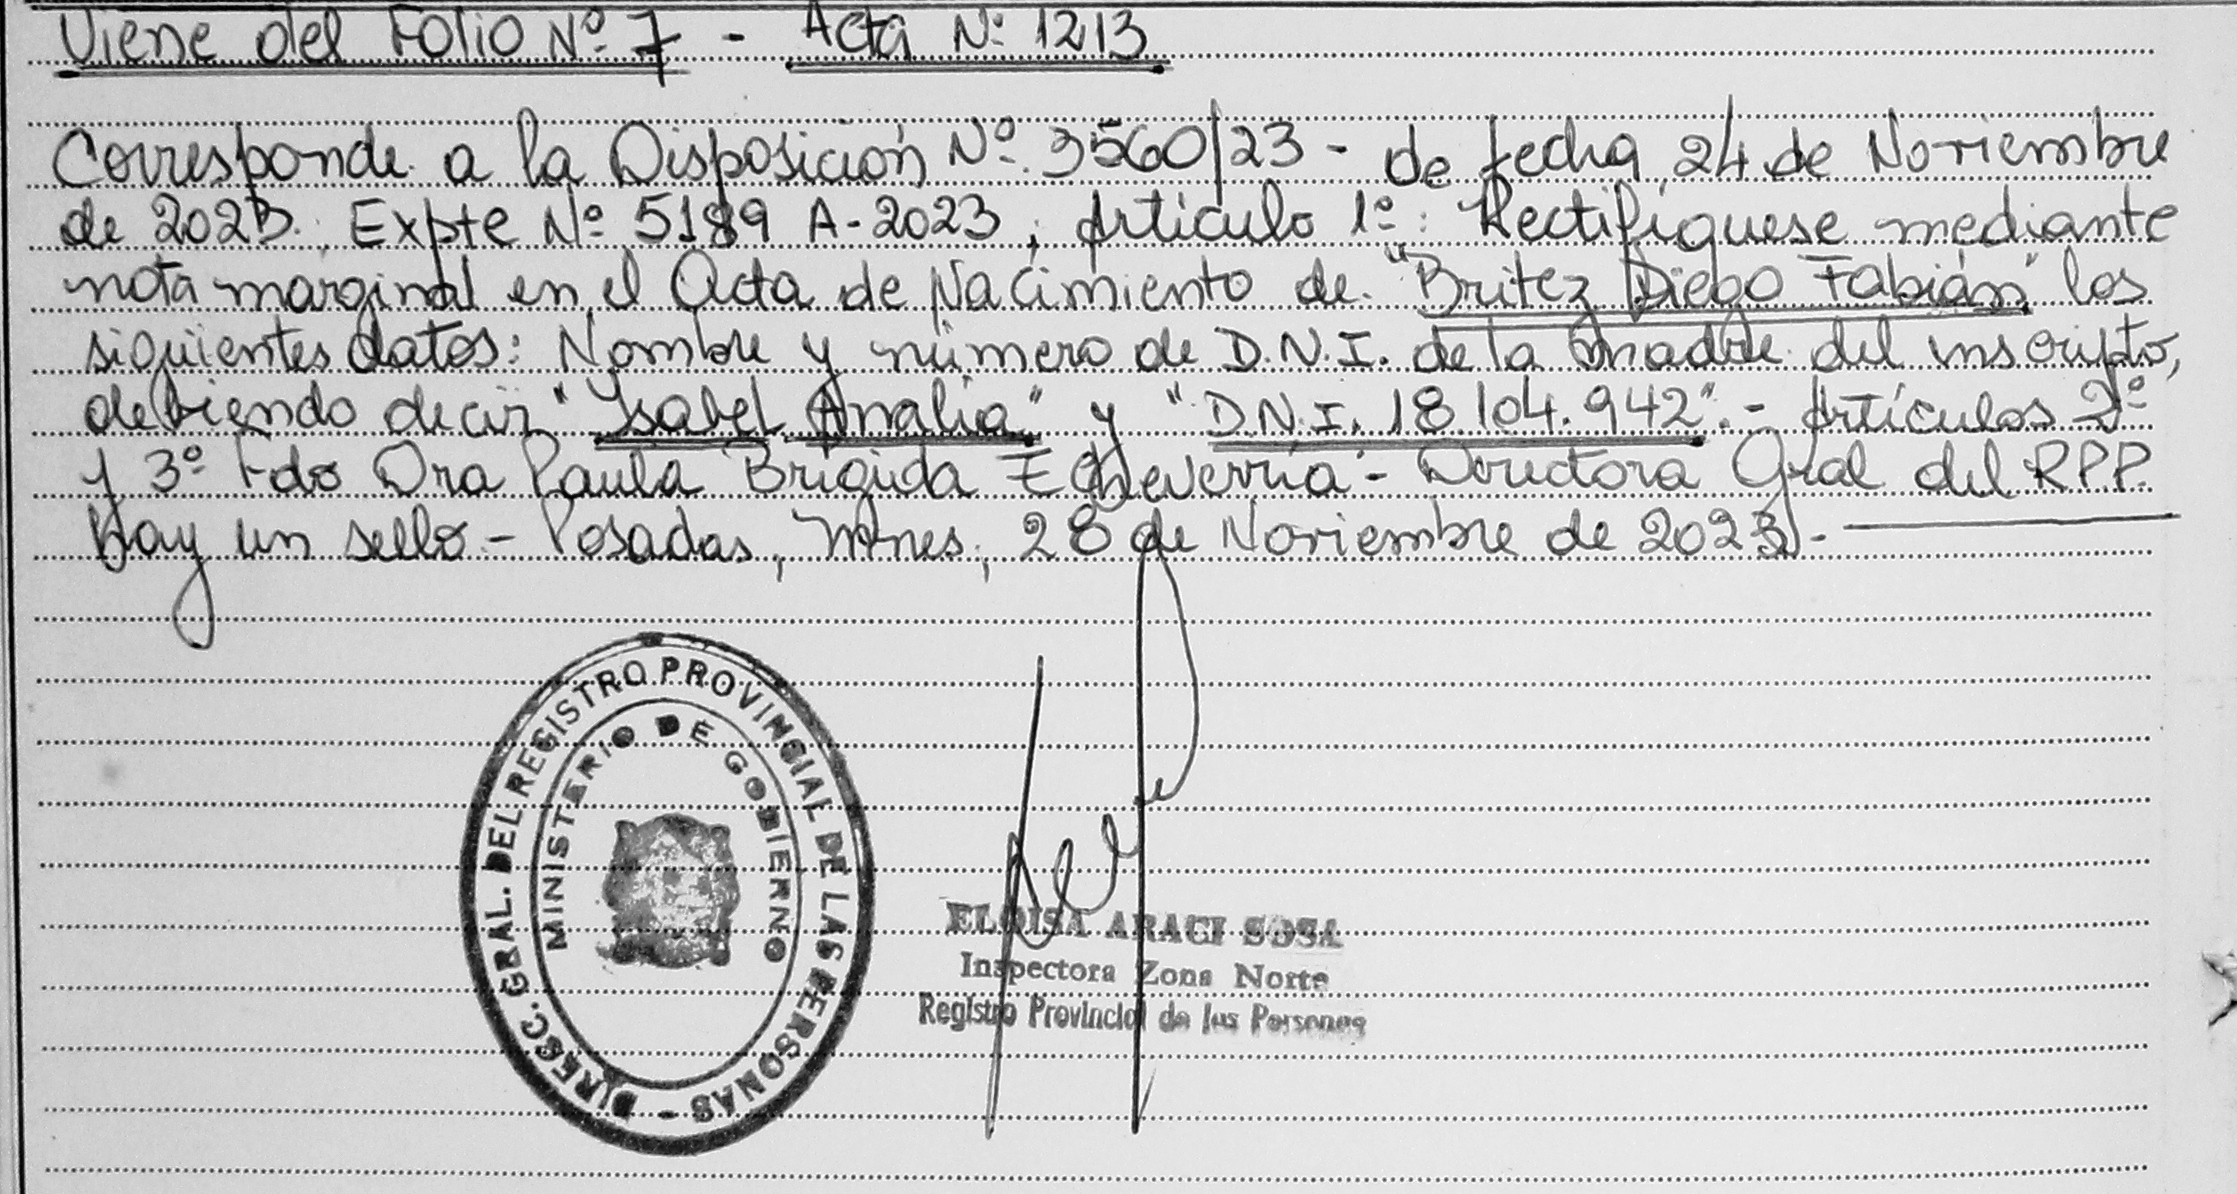 Viene del Folio Nº 7 - Acta Nº 1213
Corresponde a la Disposición Nº 3560/23 - de fecha 24 de Noviembre
de 2023. Expte Nº 5189 A-2023, Artículo 1º: Rectifíquese mediante
nota marginal en el Acta de Nacimiento de "Britez Diego Fabián" los
siguientes datos: Nombre y número de D.N.I. de la madre del inscripto,
debiendo decir "Ysabel Analia" y "D.N.I. 18.104.942".- Artículos 2º
y 3º Fdo Dra Paula Brígida Echeverría - Directora Gral del RPP.
Hay un sello.- Posadas, Mnes, 28 de Noviembre de 2023.-
DIRECC. GRAL. DEL REGISTRO PROVINCIAL DE LAS PERSONAS -
MINISTERIO DE GOBIERNO
ELOISA ARACI SOSA
Inspectora Zona Norte
Registro Provincial de las Personas